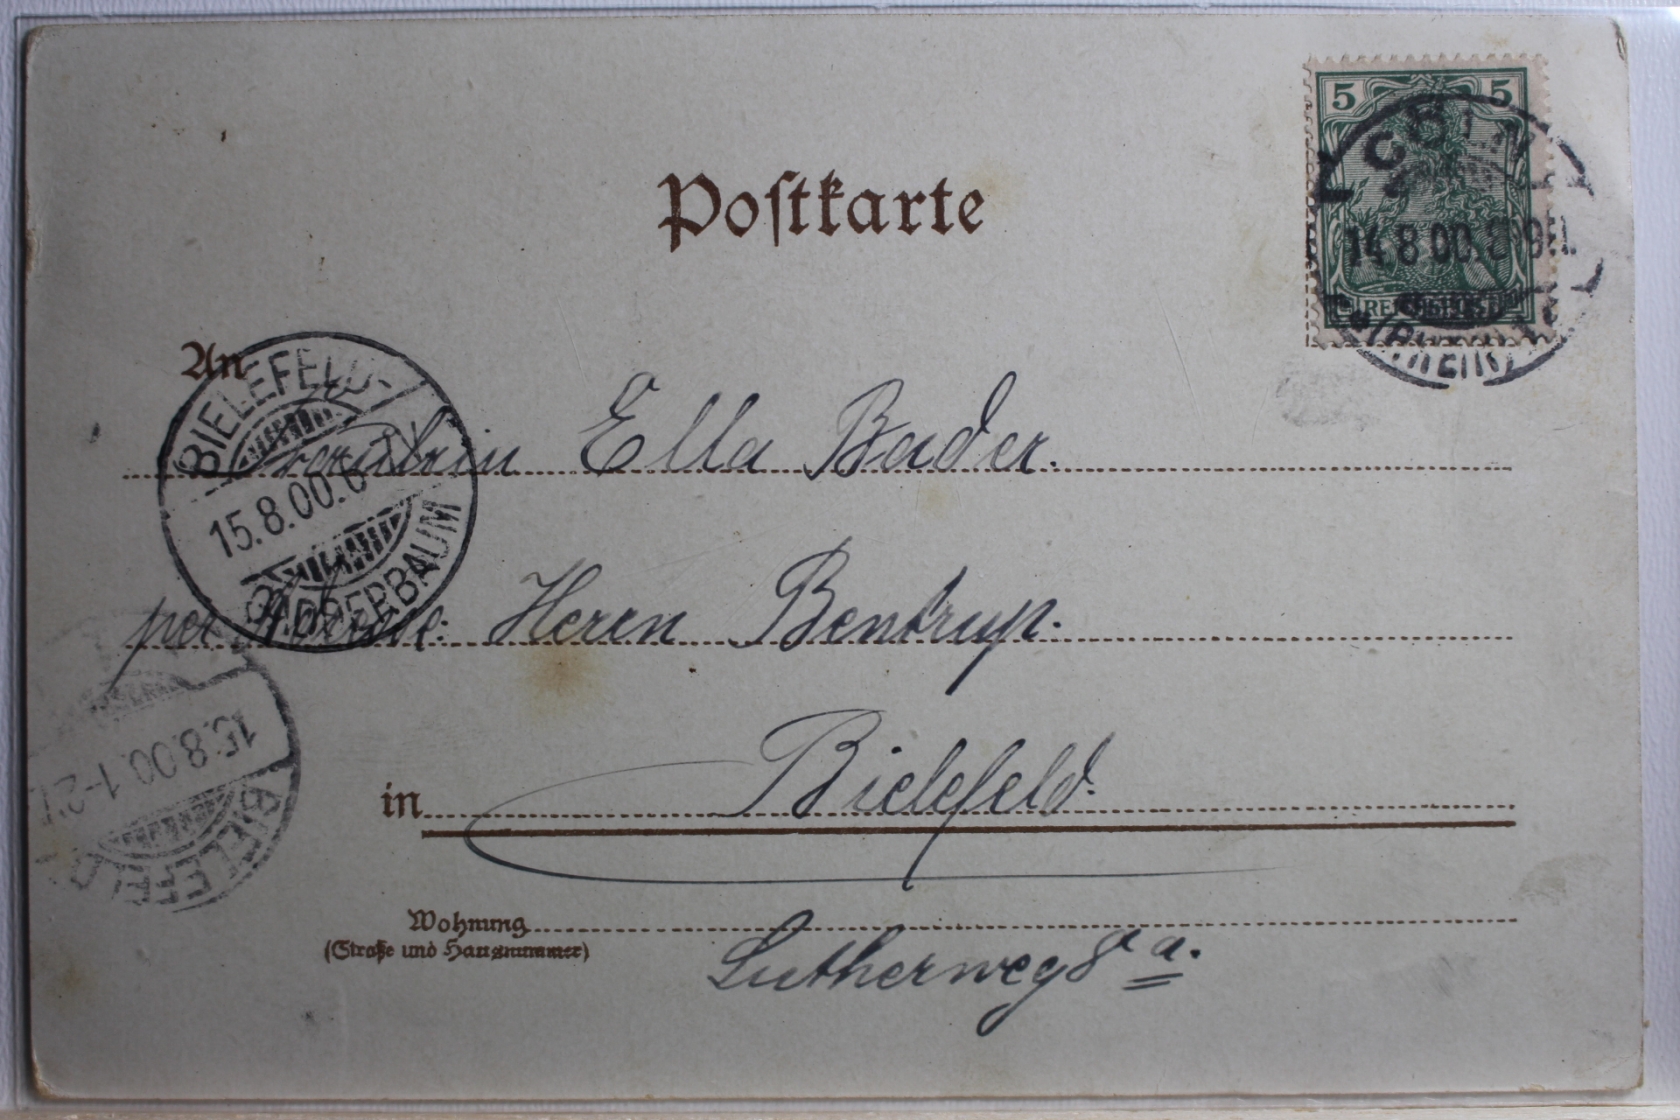 5 5
Postkarte
14.8.00.8-9N.
REICHSPOST
(RHEIN)
An
BIELEFELD-
15.8.00.6-7V.
GADDERBAUM
Fräulein Ella Bader.
per Adresse: Herrn Bentrup.
15.8.00.1-2N.
BIELEFELD
in Bielefeld.
Wohnung
(Straße und Hausnummer)
Lutherweg 8 a.